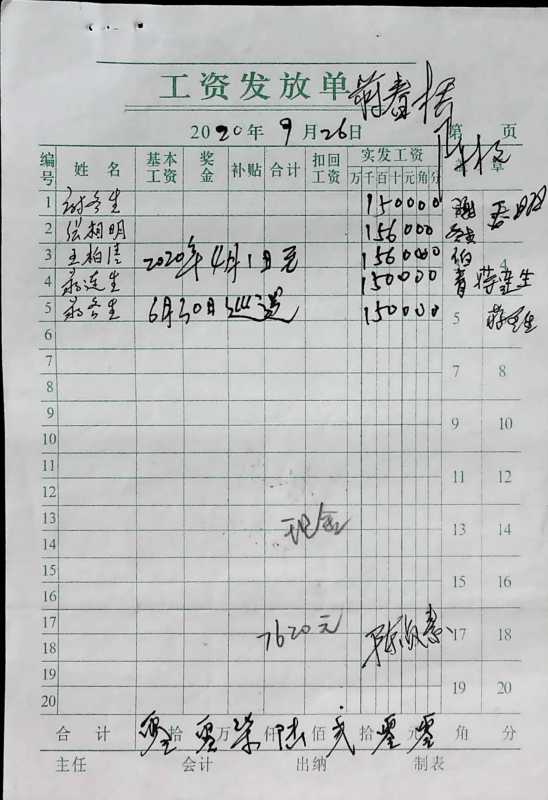 工资发放单
2020年9月26日 第 页
编号 姓名 基本工资 奖金 补贴 合计 扣回工资 实发工资 万千百十元角分 章
1 谢冬生 150000
2 张相明 156000
3 王柏清 2020年4月1日至 156000
4 蒋连生 150000 4
5 蒋冬生 6月30日 150000 5
6
7 7 8
8
9 9 10
10
11 11 12
12
13 现金 13 14
14
15 15 16
16
17 7620元 17 18
18
19 19 20
20
合计 零拾零万柒仟陆佰贰拾零元零角 分
主任 会计 出纳 制表